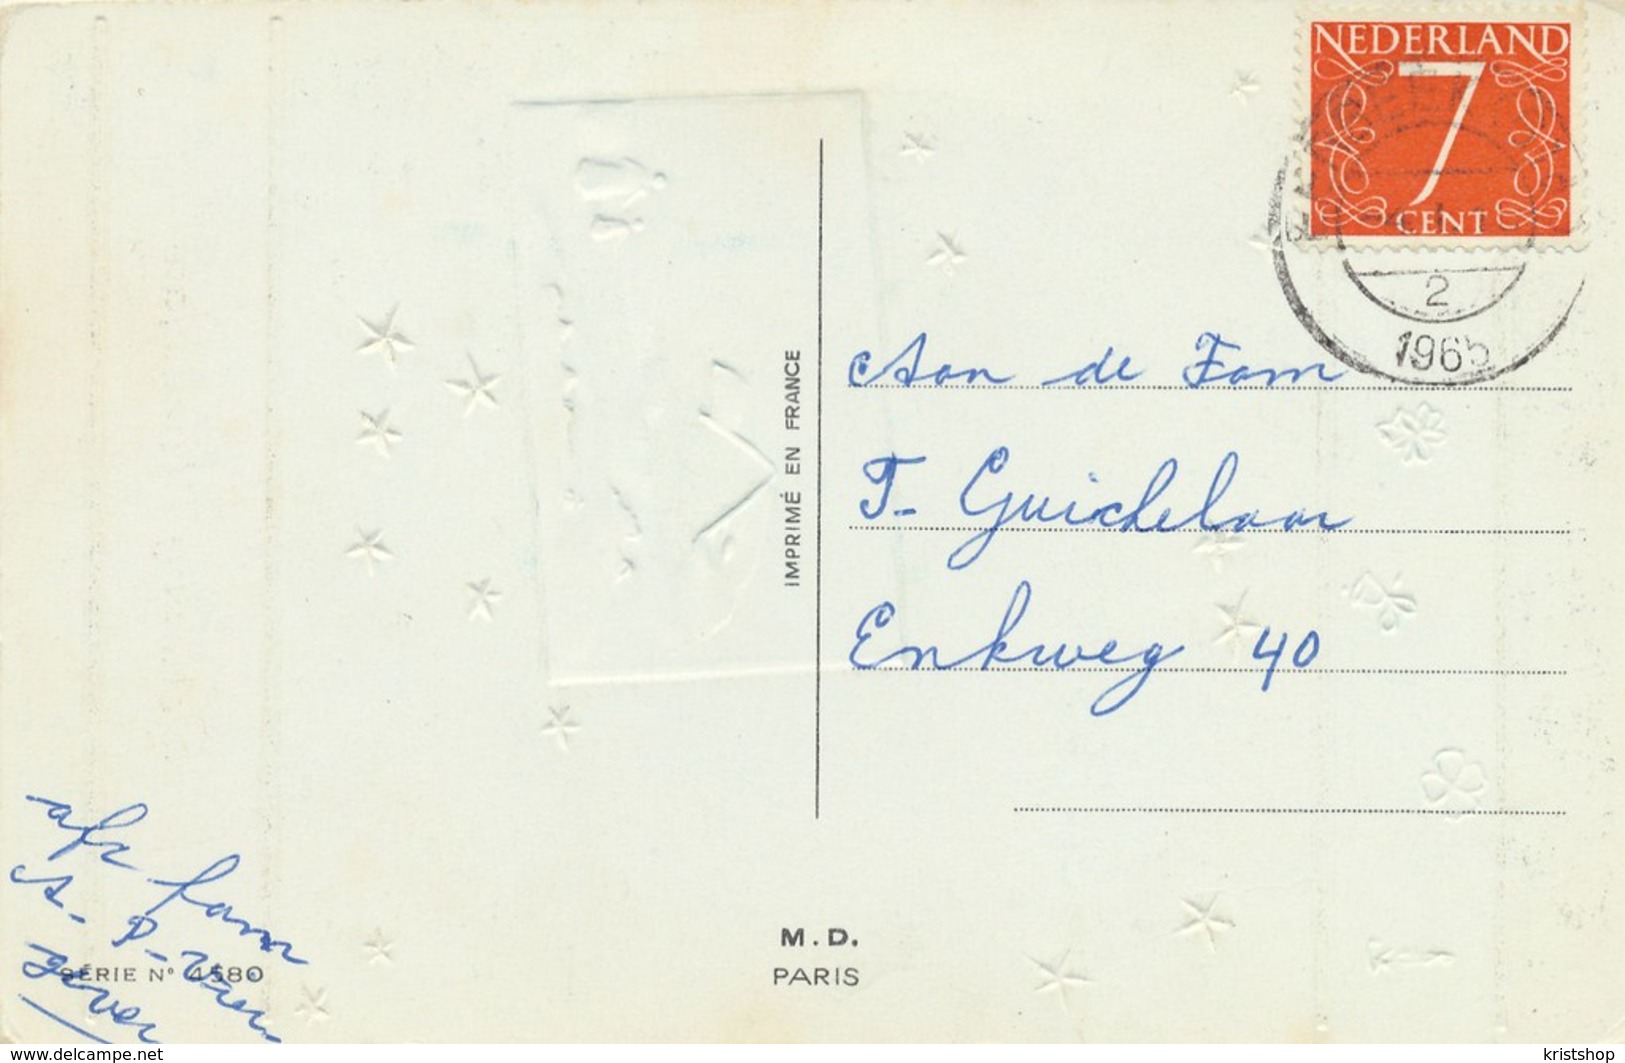 NEDERLAND
7
CENT
2
1965
Aan de Fam
T- Guichelaar
Enkweg 40
IMPRIMÉ EN FRANCE
M.D.
PARIS
SÉRIE N° 4580
afz fam
A-P-Vrer
gever
www.delcampe.net
kristshop